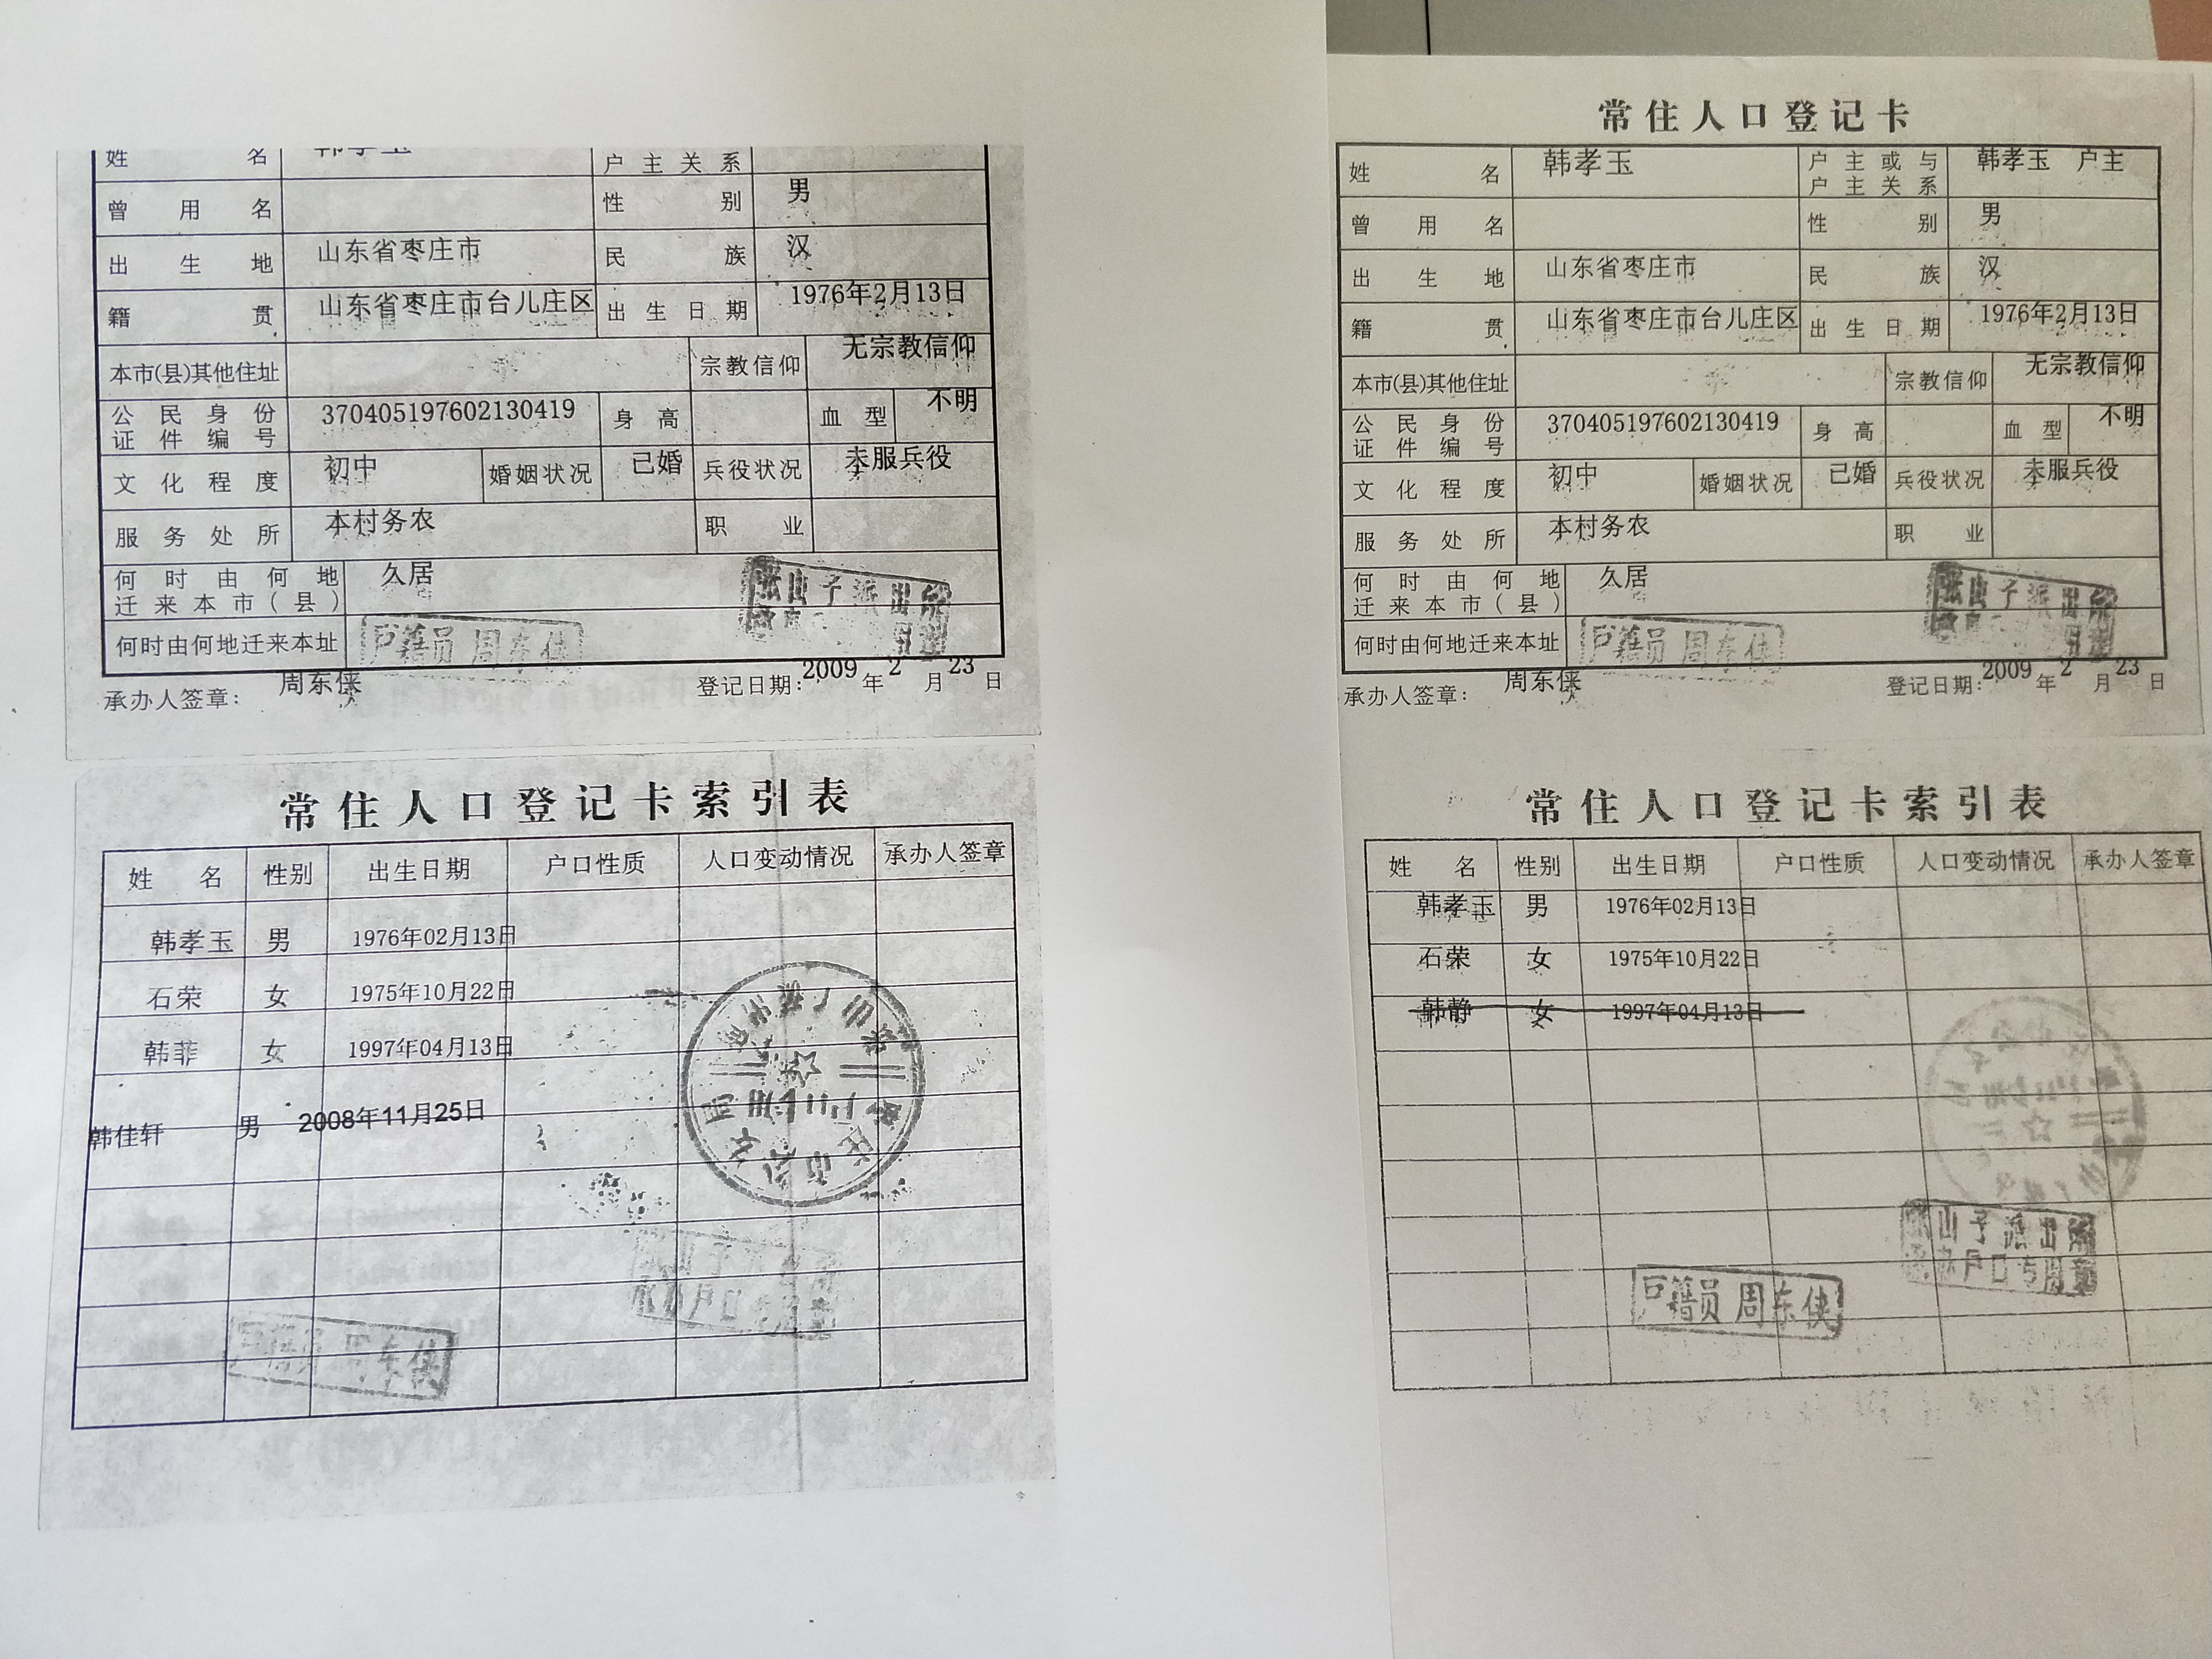 姓名 韩孝玉 户主关系
曾用名 性别 男
出生地 山东省枣庄市 民族 汉
籍贯 山东省枣庄市台儿庄区 出生日期 1976年2月13日
本市(县)其他住址 宗教信仰 无宗教信仰
公民身份证件编号 370405197602130419 身高 血型 不明
文化程度 初中 婚姻状况 已婚 兵役状况 未服兵役
服务处所 本村务农 职业
何时由何地迁来本市(县) 久居
何时由何地迁来本址
户籍员 周东侠
张山子派出所
承办人签章: 周东侠 登记日期: 2009年2月23日
常住人口登记卡索引表
姓名 性别 出生日期 户口性质 人口变动情况 承办人签章
韩孝玉 男 1976年02月13日
石荣 女 1975年10月22日
韩菲 女 1997年04月13日
韩佳轩 男 2008年11月25日
户籍员 周东侠
常住人口登记卡
姓名 韩孝玉 户主或与户主关系 韩孝玉 户主
曾用名 性别 男
出生地 山东省枣庄市 民族 汉
籍贯 山东省枣庄市台儿庄区 出生日期 1976年2月13日
本市(县)其他住址 宗教信仰 无宗教信仰
公民身份证件编号 370405197602130419 身高 血型 不明
文化程度 初中 婚姻状况 已婚 兵役状况 未服兵役
服务处所 本村务农 职业
何时由何地迁来本市(县) 久居
何时由何地迁来本址
户籍员 周东侠
张山子派出所
承办人签章: 周东侠 登记日期: 2009年2月23日
常住人口登记卡索引表
姓名 性别 出生日期 户口性质 人口变动情况 承办人签章
韩孝玉 男 1976年02月13日
石荣 女 1975年10月22日
韩静 女 1997年04月13日
张山子派出所
承办户口专用章
户籍员 周东侠